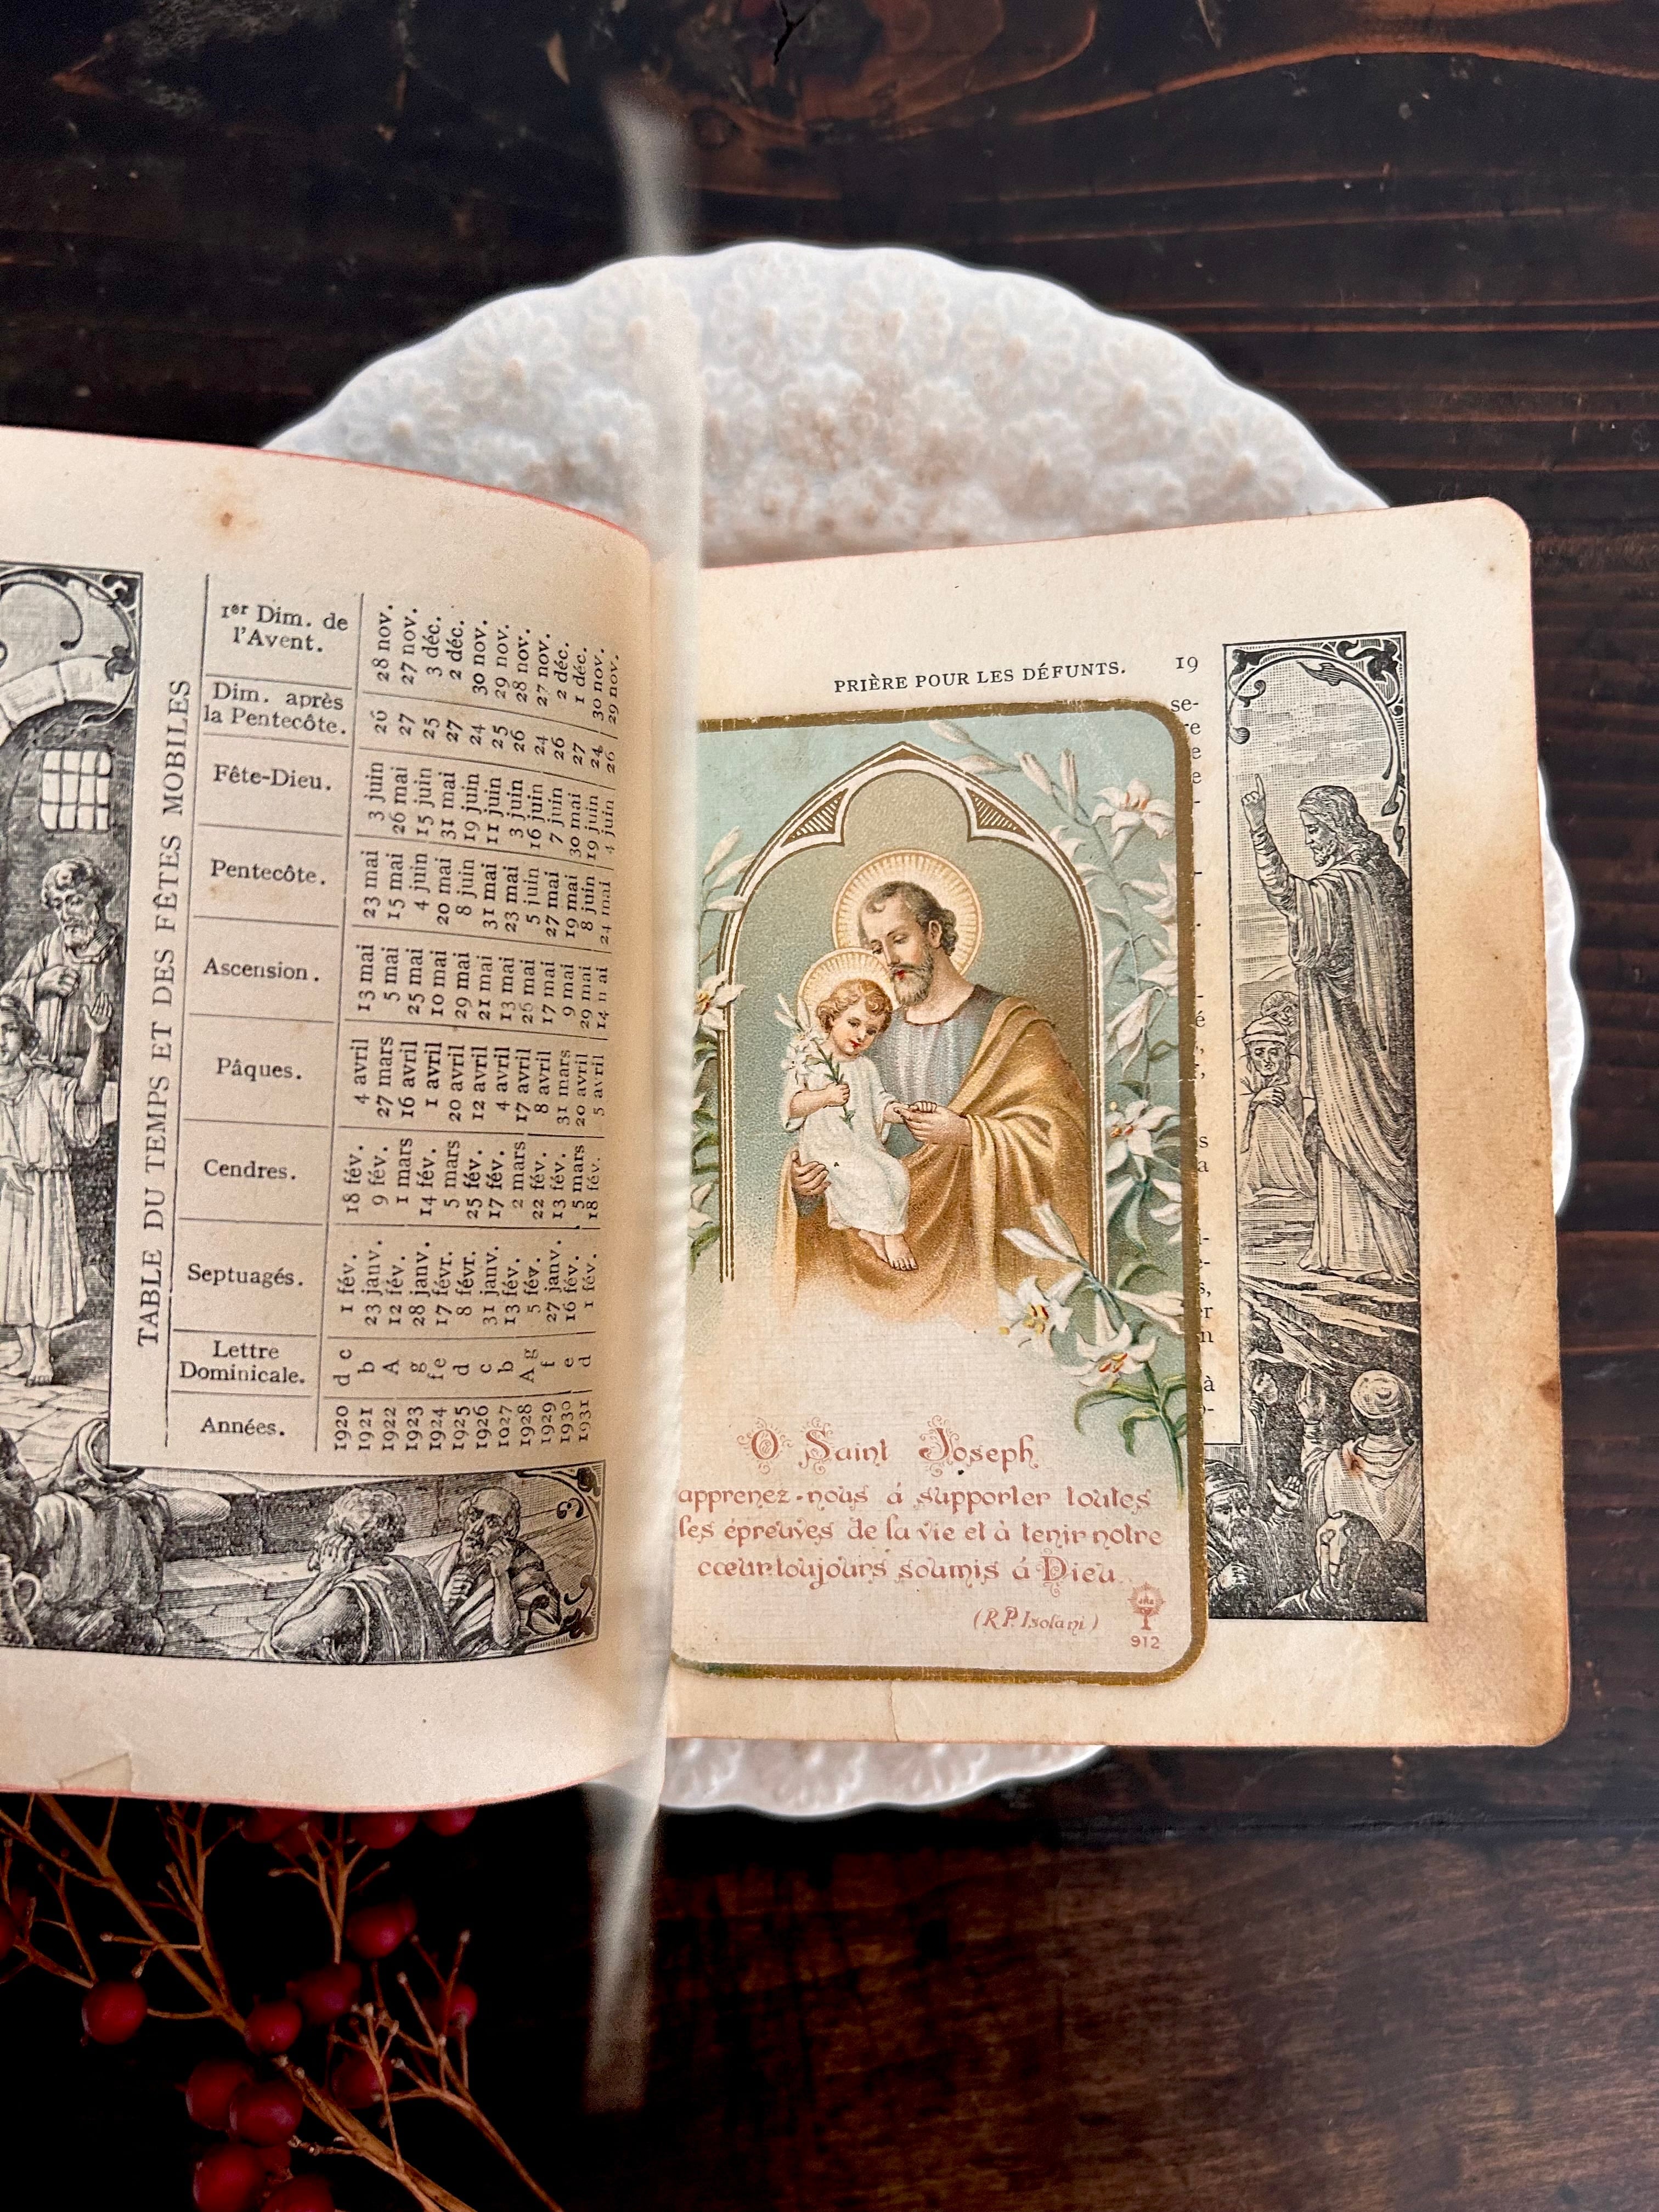 TABLE DU TEMPS ET DES FÊTES MOBILES
Années.
Lettre
Dominicale.
Septuagés.
Cendres.
Pâques.
Ascension.
Pentecôte.
Fête-Dieu.
Dim. après
la Pentecôte.
1er Dim. de
l'Avent.
1920 d c 1 fév. 18 fév. 4 avril 13 mai 23 mai 3 juin 26 28 nov.
1921 b 23 janv. 9 fév. 27 mars 5 mai 15 mai 26 mai 27 27 nov.
1922 A 12 fév. 1 mars 16 avril 25 mai 4 juin 15 juin 25 3 déc.
1923 g 28 janv. 14 fév. 1 avril 10 mai 20 mai 31 mai 27 2 déc.
1924 f e 17 févr. 5 mars 20 avril 29 mai 8 juin 19 juin 24 30 nov.
1925 d 8 févr. 25 fév. 12 avril 21 mai 31 mai 11 juin 25 29 nov.
1926 c 31 janv. 17 fév. 4 avril 13 mai 23 mai 3 juin 26 28 nov.
1927 b 13 fév. 2 mars 17 avril 26 mai 5 juin 16 juin 24 27 nov.
1928 A g 5 fév. 22 fév. 8 avril 17 mai 27 mai 7 juin 26 2 déc.
1929 f 27 janv. 13 fév. 31 mars 9 mai 19 mai 30 mai 27 1 déc.
1930 e 16 fév. 5 mars 20 avril 29 mai 8 juin 19 juin 24 30 nov.
1931 d 1 fév. 18 fév. 5 avril 14 mai 24 mai 4 juin 26 29 nov.
PRIÈRE POUR LES DÉFUNTS. 19
O Saint Joseph
apprenez-nous á supporter toutes
les épreuves de la vie et à tenir notre
cœur toujours soumis á Dieu.
(R.P. Isolani)
912